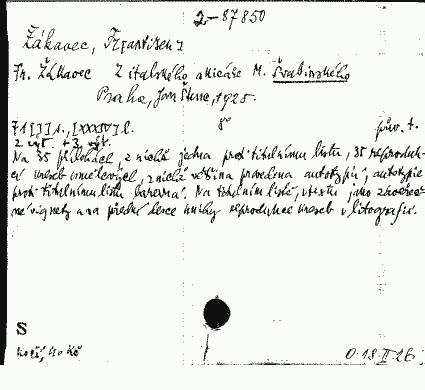 2-87850
Žákavec, Fr[antišek]
Fr. Žákavec Z italského skicáře M. Švabinského
Praha, Jan Štenc, 1925.
71 [1] s., [XXXIV] l. 8° pův. t.
2 výt. + 3. výt.
Na 35 přílohách, z nichž jedna proti titulnímu listu, 35 reproduk-
cí kreseb uměleckých, z nichž většina provedena autotypií, autotypie
proti titulnímu listu barevná. Na titulním listě, v textu jako
né vignety a na přední desce knihy reprodukce kreseb v litografii.
S
0.18.II.26.